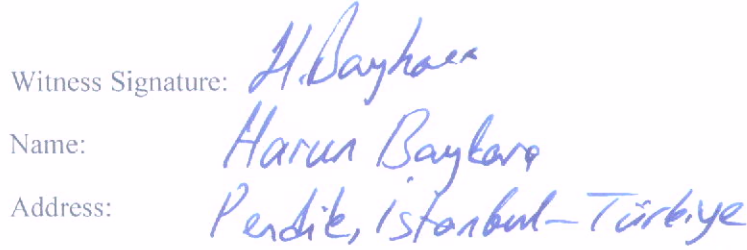 Witness Signature: H. Baykara
Name: Harun Baykara
Address: Pendik, İstanbul - Türkiye